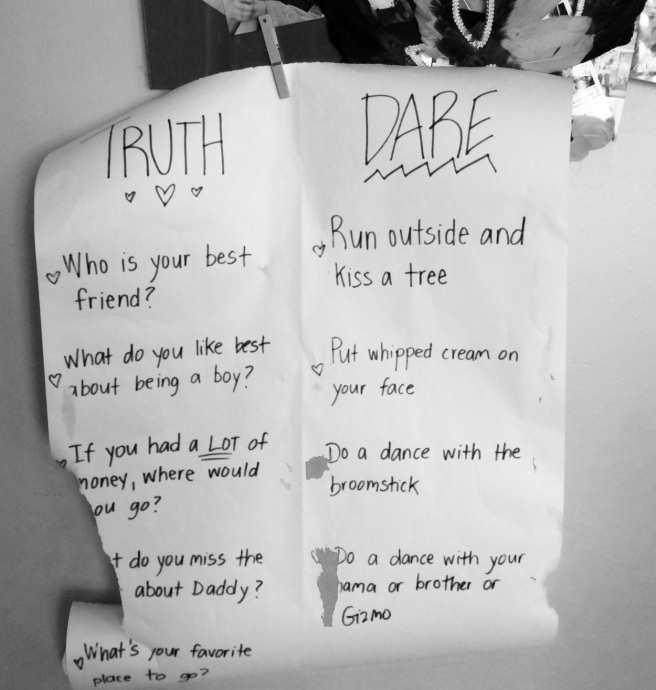 TRUTH
Who is your best
friend?
What do you like best
about being a boy?
If you had a LOT of
money, where would
you go?
do you miss the
about Daddy?
What's your favorite
place to go?
DARE
Run outside and
kiss a tree
Put whipped cream on
your face
Do a dance with the
broomstick
Do a dance with your
mama or brother or
Gizmo